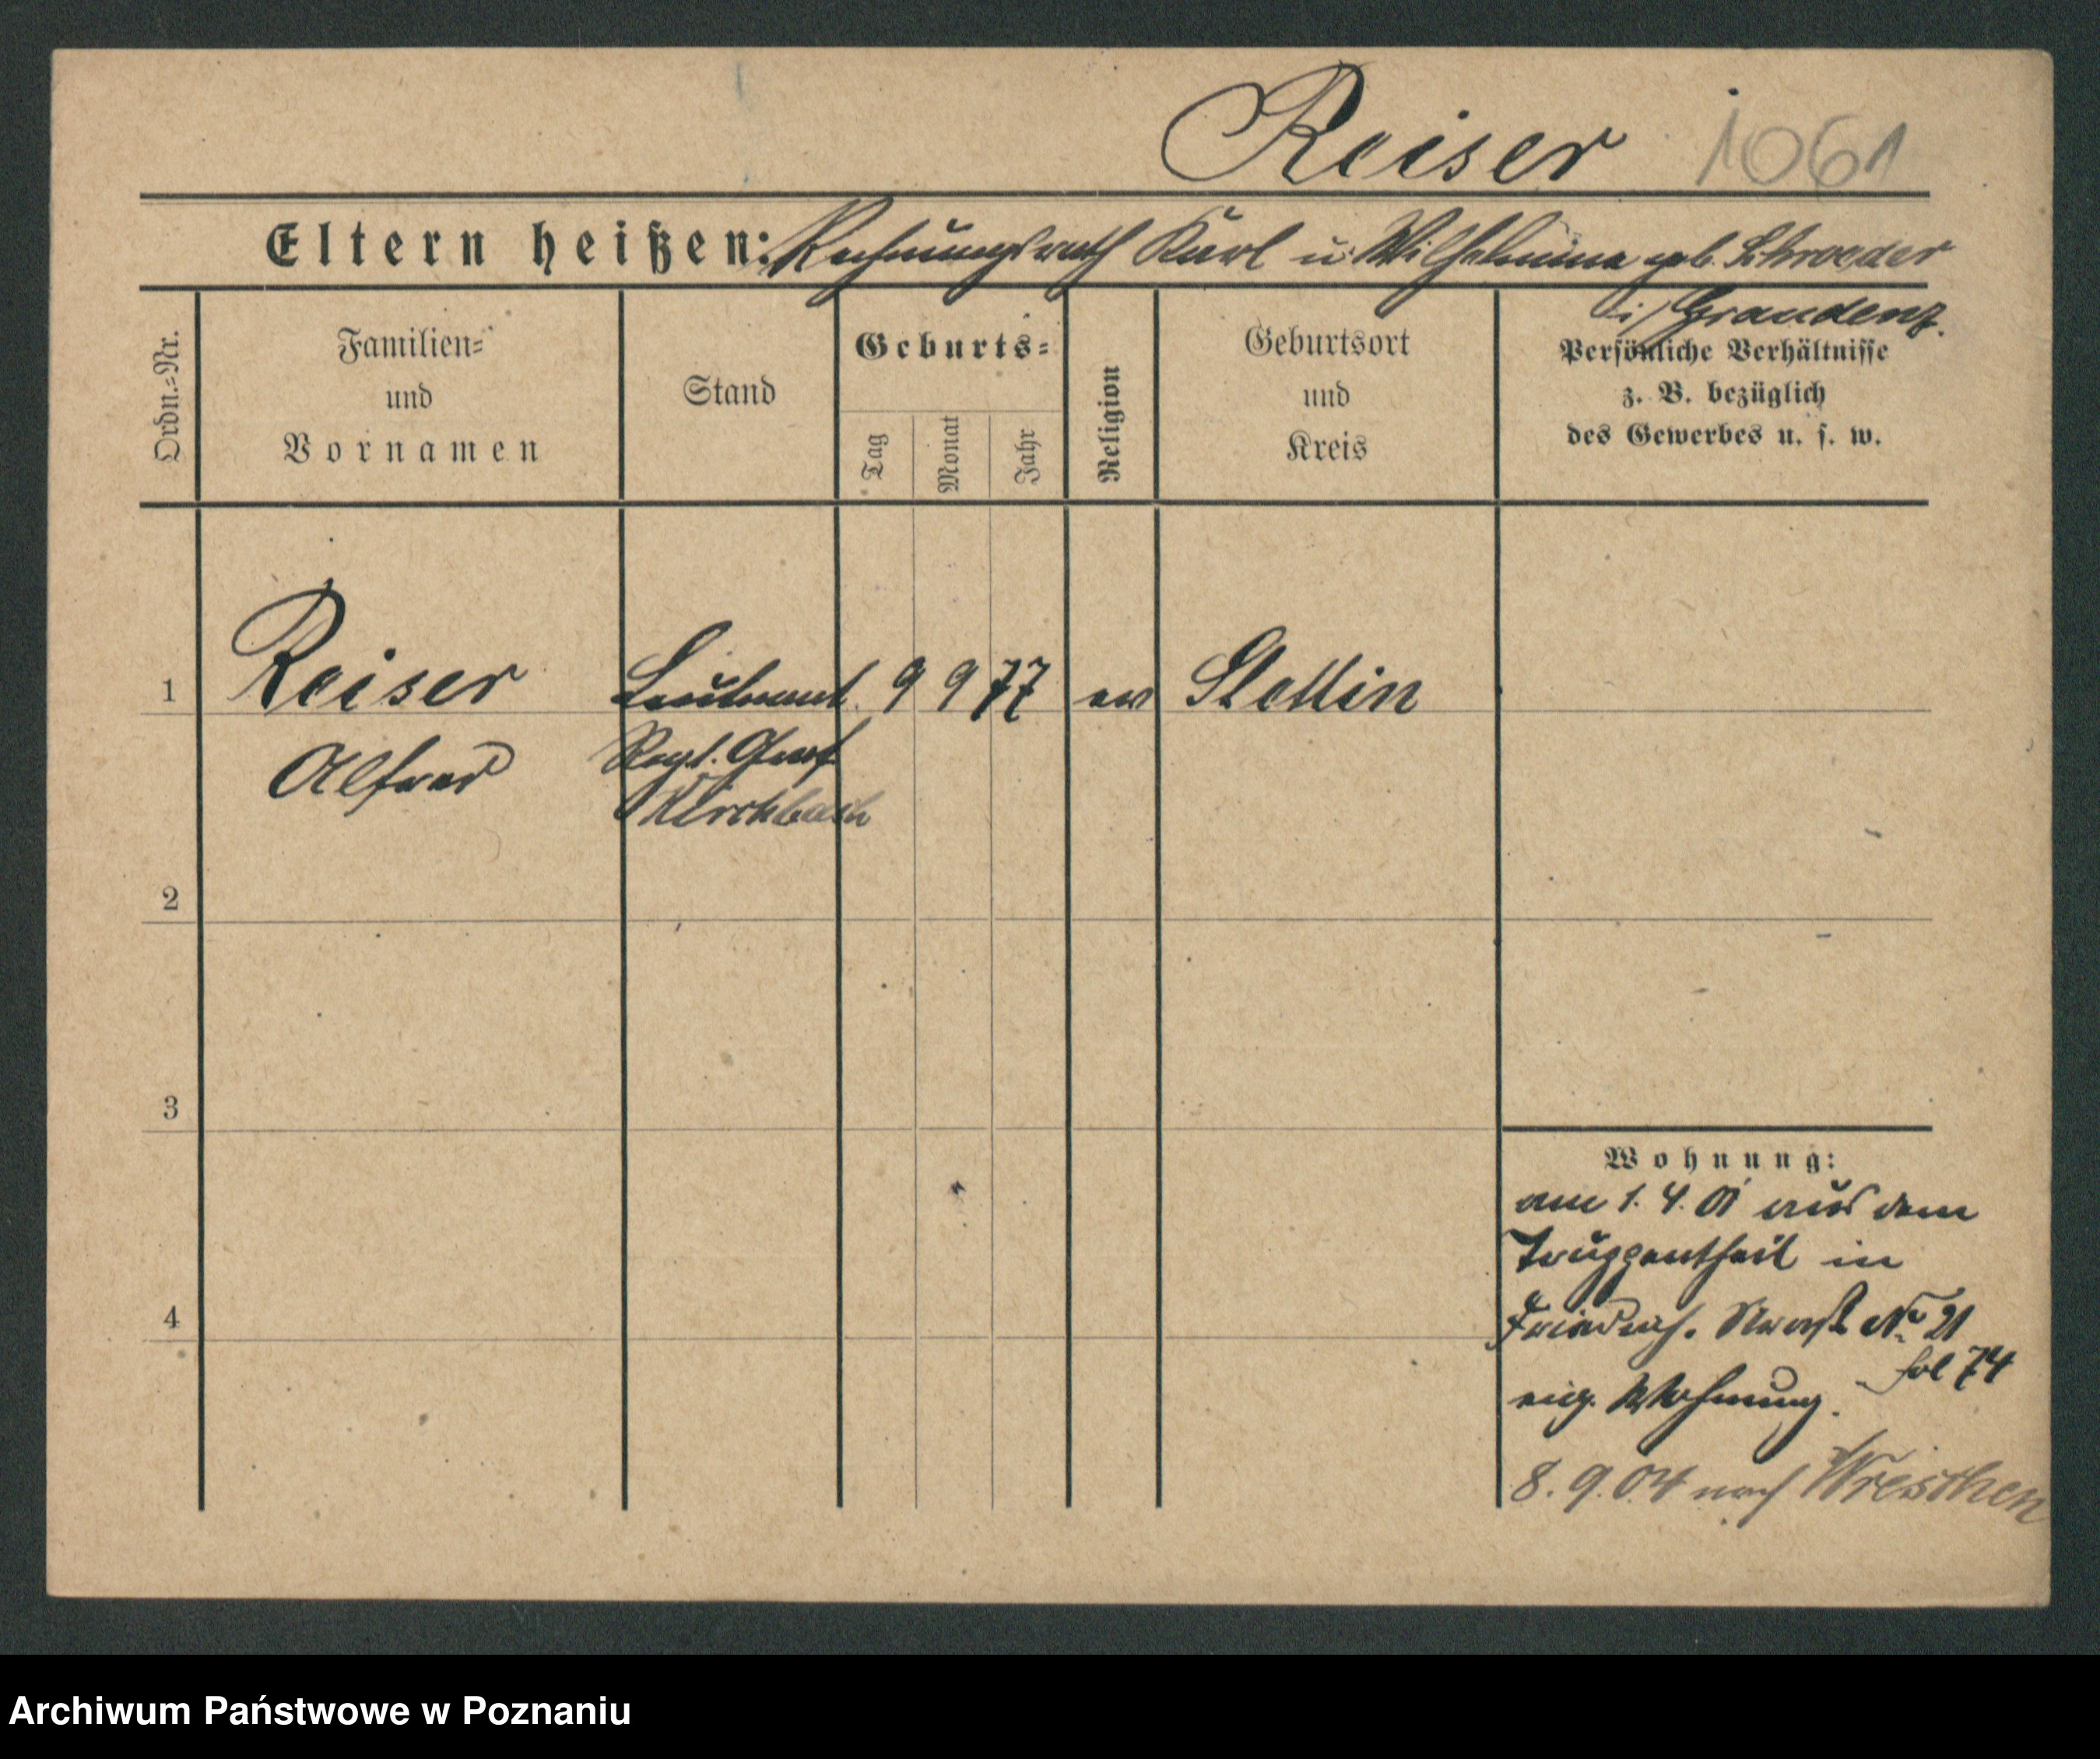 Reiser 1061
Eltern heißen: Rechnungsrath Karl u. Wilhelmine geb. Schroeder
i/ Graudenz.
Ordn.-Nr.
Familien-
und
Vornamen
Stand
Geburts-
Tag
Monat
Jahr
Religion
Geburtsort
und
Kreis
Persönliche Verhältnisse
z. B. bezüglich
des Gewerbes u. s. w.
1 Reiser Leutnant 9 9 77 ev Stettin
Alfred Regt. Graf
Kirchbach
2
3
4
Wohnung:
am 1. 4. 01 aus dem
Truppentheil in
Friedrich. Straße No 21
fol 74
eig. Wohnung.
8. 9. 04 nach Wreschen
Archiwum Państwowe w Poznaniu